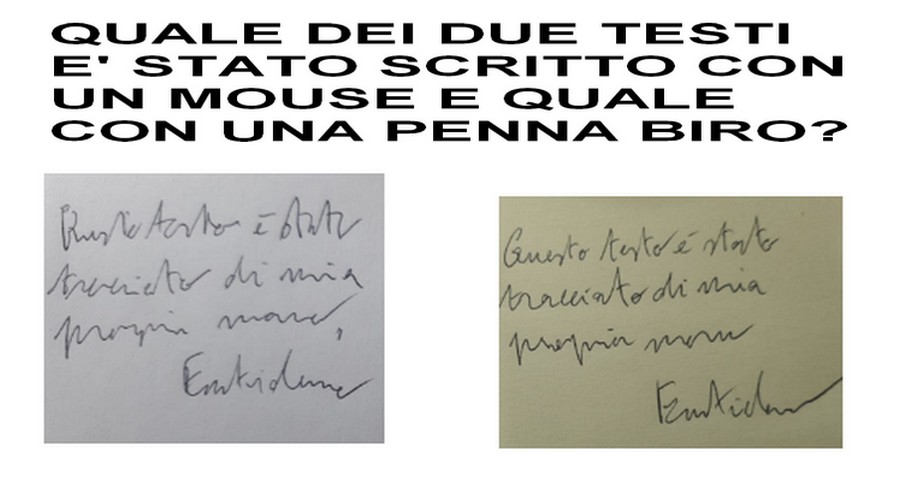 QUALE DEI DUE TESTI
E' STATO SCRITTO CON
UN MOUSE E QUALE
CON UNA PENNA BIRO?
Questo testo è stato
tracciato di mia
propria mano,
Questo testo è stato
tracciato di mia
propria mano